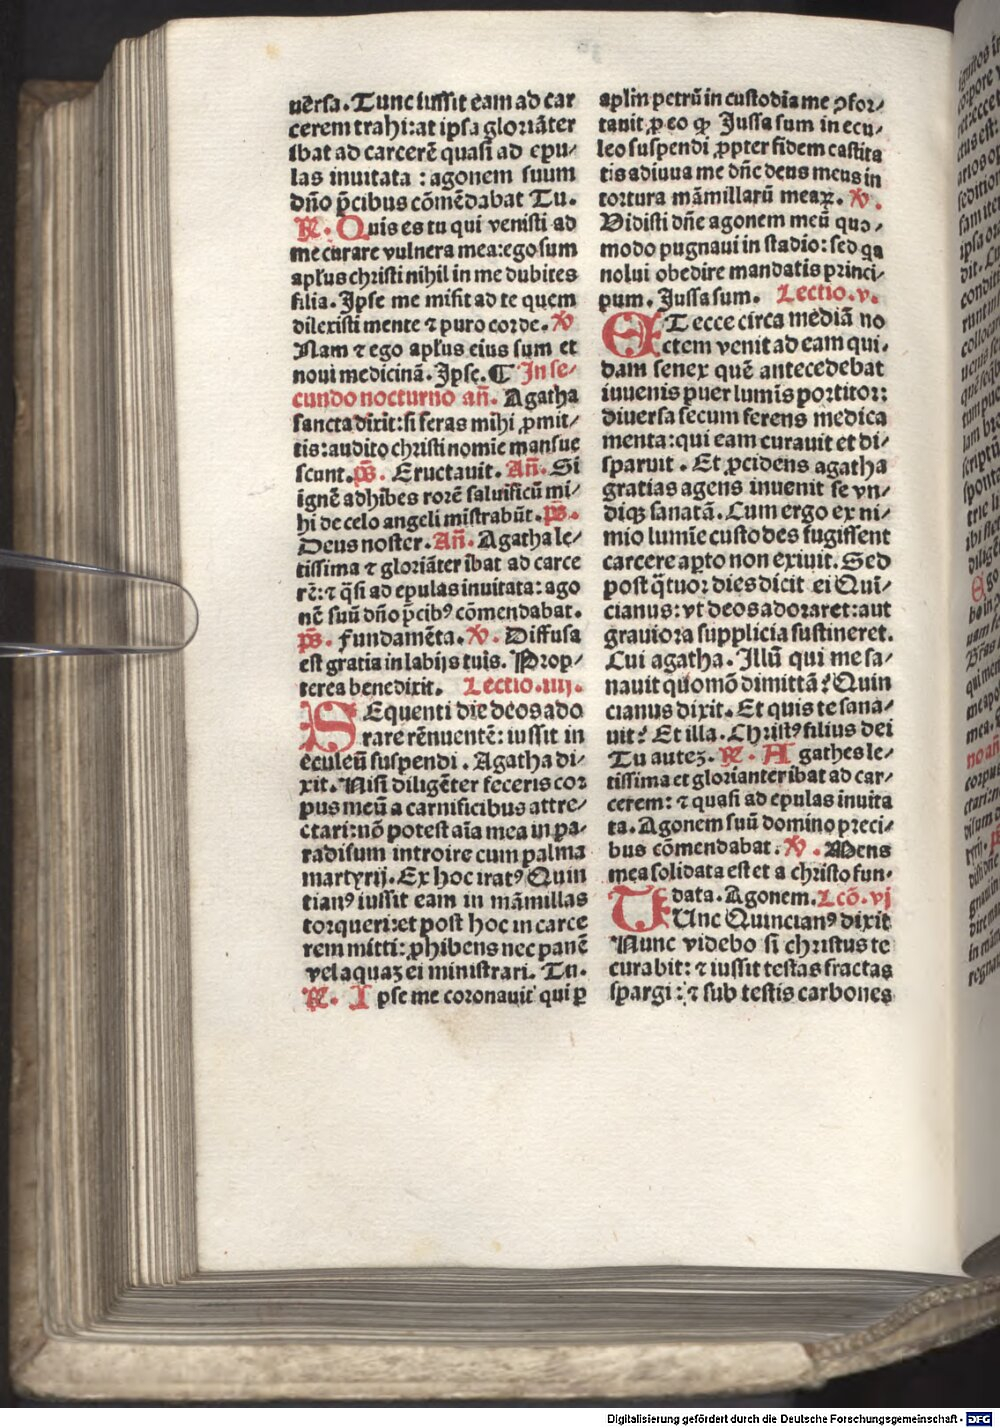 uersa. Tunc iussit eam ad car
cerem trahi: at ipsa gloriāter
ibat ad carcerē quasi ad epu⸗
las inuitata : agonem suum
dn̄o p̄cibus cōmēdabat Tu.
R̷. Quis es tu qui venisti ad
me curare vulnera mea: ego sum
apl̄us christi nihil in me dubites
filia. Ipse me misit ad te quem
dilexisti mente ⁊ puro corde. V̷
Nam ⁊ ego apl̄us eius sum et
noui medicinā. Ipse. ¶ In se⸗
cundo nocturno an̄. Agatha
sancta dixit: si feras mihi ꝓmit⸗
tis: audito christi nomie mansue
scunt. ps̄. Eructauit. An̄. Si
ignē adhibes rorē saluificū mi⸗
hi de celo angeli mistrabūt. ps̄.
Deus noster. An̄. Agatha le⸗
tissima ⁊ gloriāter ibat ad carce
rē: ⁊ q̄si ad epulas inuitata: ago
nē suū dn̄o p̄cibꝰ cōmendabat.
ps̄. Fundamēta. V̷. Diffusa
est gratia in labijs tuis. Prop⸗
terea benedixit. Lectio. iiij.
SEquenti die deos ado
rare rēnuentē: iussit in
eculeū suspendi. Agatha di⸗
xit. Nisi diligēter feceris cor
pus meū a carnificibus attre⸗
ctari: nō potest aīa mea in pa⸗
radisum introire cum palma
martyrij. Ex hoc iratꝰ Quin
tianꝰ iussit eam in māmillas
torqueri: et post hoc in carce
rem mitti: ꝓhibens nec panē
vel aquaꝫ ei ministrari. Tu.
R̷. Ipse me coronauit qui ꝑ
apl̄m petrū in custodia me ꝯfor⸗
tauit ꝓ eo ꝙ Iussa sum in ecu⸗
leo suspendi ꝓpter fidem castita
tis adiuua me dn̄e deus meus in
tortura māmillarū meaꝝ. V̷.
Vidisti dn̄e agonem meū quo⸗
modo pugnaui in stadio: sed qa
nolui obedire mandatis princi⸗
pum. Iussa sum. Lectio. v.
ET ecce circa mediā no
ctem venit ad eam qui⸗
dam senex quē antecedebat
iuuenis puer lumis portitor:
diuersa secum ferens medica
menta: qui eam curauit et di⸗
sparuit. Et ꝓcidens agatha
gratias agens inuenit se vn⸗
diqꝫ sanatā. Cum ergo ex ni⸗
mio lumīe custodes fugissent
carcere apto non exiuit. Sed
post q̄tuor dies dicit ei Qui⸗
cianus: vt deos adoraret: aut
grauiora supplicia sustineret.
Cui agatha. Illū qui me sa⸗
nauit quomō dimittā? Quin
cianus dixit. Et quis te sana⸗
uit? Et illa. Christꝰ filius dei
Tu auteꝫ. R̷. Agathes le⸗
tissima et glorianter ibat ad car⸗
cerem: ⁊ quasi ad epulas inuita
ta. Agonem suū domino preci⸗
bus cōmendabat. V̷. Mens
mea solidata est et a christo fun⸗
data. Agonem. Lcō. vj
TUnc Quincianꝰ dixit
Nunc videbo si christus te
curabit: ⁊ iussit testas fractas
spargi : ⁊ sub testis carbones
Digitalisierung gefördert durch die Deutsche Forschungsgemeinschaft - DFG